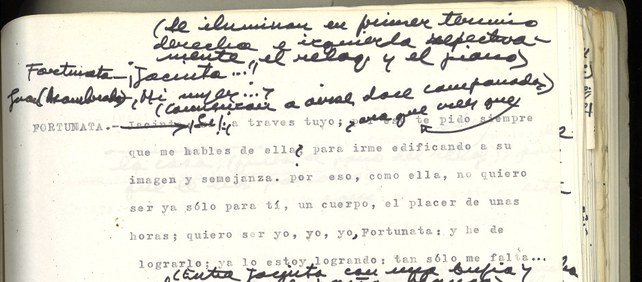 (Se iluminan en primer termino
derecha e izquierda respectiva-
mente, el reloj y el piano)
Fortunata-¡Jacinta...!
Juan(Asombrado)¿Mi mujer...?
(Comienzan a sonar doce campanadas)
¿no ves que
FORTUNATA.- Jacinta ¡Sí¡ a traves tuyo; te pido siempre
que me hables de ella? para irme edificando a su
imagen y semejanza. por eso, como ella, no quiero
ser ya sólo para tí, un cuerpo, el placer de unas
horas; quiero ser yo, yo, yo,Fortunata: y he de
lograrlo; ya lo estoy logrando: tan sólo me falta...
(Entra Jacinta con una bujía y